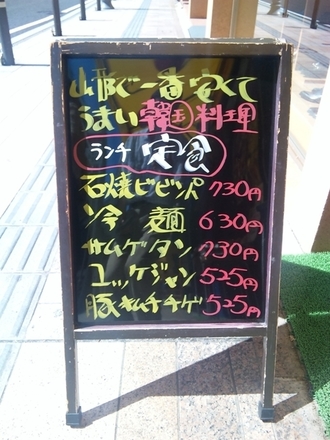 山形で一番安くて
うまい韓国料理
ランチ 定食
石焼ビビンバ 730円
冷麺 630円
サムゲタン 730円
ユッケジャン 525円
豚キムチチゲ 525円